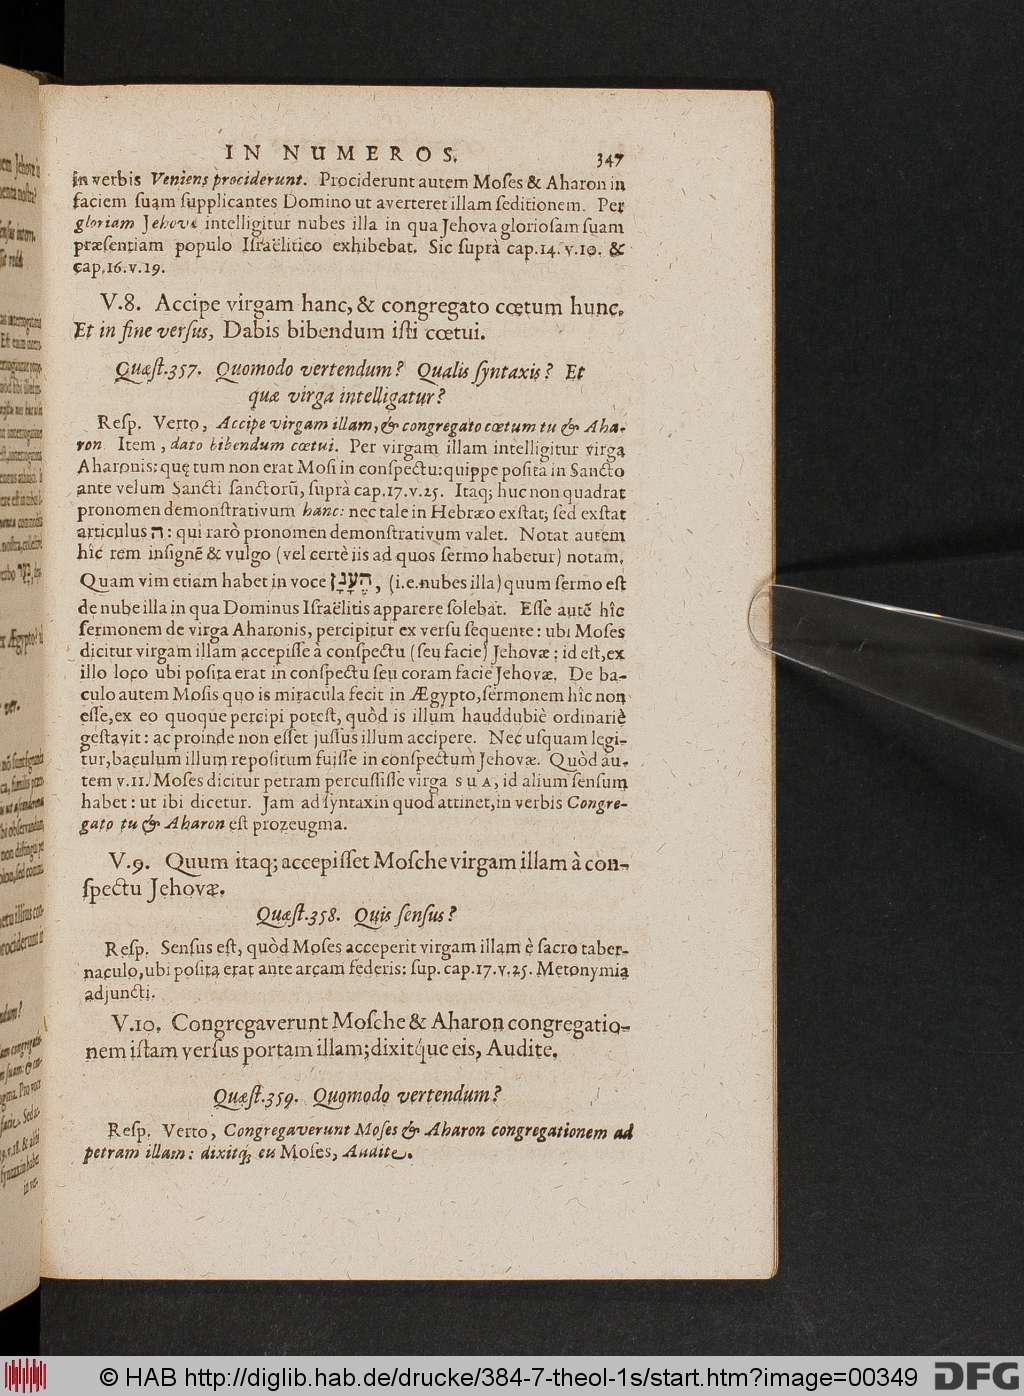 IN NUMEROS. 347
in verbis Veniens prociderunt. Prociderunt autem Moſes & Aharon in
faciem ſuam ſupplicantes Domino ut averteret illam ſeditionem. Per
gloriam Jehovæ intelligitur nubes illa in qua Jehova glorioſam ſuam
præſentiam populo Iſraëlitico exhibebat. Sic ſuprà cap.14. v.10. &
cap.16.v.19.
V.8. Accipe virgam hanc, & congregato cœtum hunc.
Et in fine verſus, Dabis bibendum iſti cœtui.
Quæſt.357. Quomodo vertendum? Qualis ſyntaxis? Et
quæ virga intelligatur?
Reſp. Verto, Accipe virgam illam, & congregato cœtum tu & Aha-
ron. Item, dato bibendum cœtui. Per virgam illam intelligitur virga
Aharonis: quę tum non erat Moſi in conſpectu: quippe poſita in Sancto
ante velum Sancti ſanctorū, ſuprà cap.17.v.25. Itaq; huc non quadrat
pronomen demonſtrativum hanc: nec tale in Hebræo exſtat; ſed exſtat
articulus ה: qui rarò pronomen demonſtrativum valet. Notat autem
hîc rem inſignē & vulgo (vel certè iis ad quos ſermo habetur) notam.
Quam vim etiam habet in voce הֶעָנָן, (i.e. nubes illa) quum ſermo eſt
de nube illa in qua Dominus Iſraëlitis apparere ſolebat. Eſſe autē hîc
ſermonem de virga Aharonis, percipitur ex verſu ſequente: ubi Moſes
dicitur virgam illam accepiſſe à conſpectu (ſeu facie) Jehovæ: id eſt, ex
illo loco ubi poſita erat in conſpectu ſeu coram facie Jehovæ. De ba-
culo autem Moſis quo is miracula fecit in Ægypto, ſermonem hîc non
eſſe, ex eo quoque percipi poteſt, quòd is illum hauddubiè ordinariè
geſtavit: ac proinde non eſſet juſſus illum accipere. Nec uſquam legi-
tur, baculum illum repoſitum fuiſſe in conſpectum Jehovæ. Quòd au-
tem v.11. Moſes dicitur petram percuſſiſſe virga SUA, id alium ſenſum
habet: ut ibi dicetur. Jam ad ſyntaxin quod attinet, in verbis Congre-
gato tu & Aharon eſt prozeugma.
V.9. Quum itaq; accepiſſet Moſche virgam illam à con-
ſpectu Jehovæ.
Quæſt.358. Quis ſenſus?
Reſp. Senſus eſt, quòd Moſes acceperit virgam illam è ſacro taber-
naculo, ubi poſita erat ante arcam fœderis: ſup. cap.17.v.25. Metonymia
adjuncti.
V.10. Congregaverunt Moſche & Aharon congregatio-
nem iſtam verſus portam illam; dixitq́ue eis, Audite.
Quæſt.359. Quomodo vertendum?
Reſp. Verto, Congregaverunt Moſes & Aharon congregationem ad
petram illam: dixitq; eis Moſes, Audite.
© HAB http://diglib.hab.de/drucke/384-7-theol-1s/start.htm?image=00349
DFG